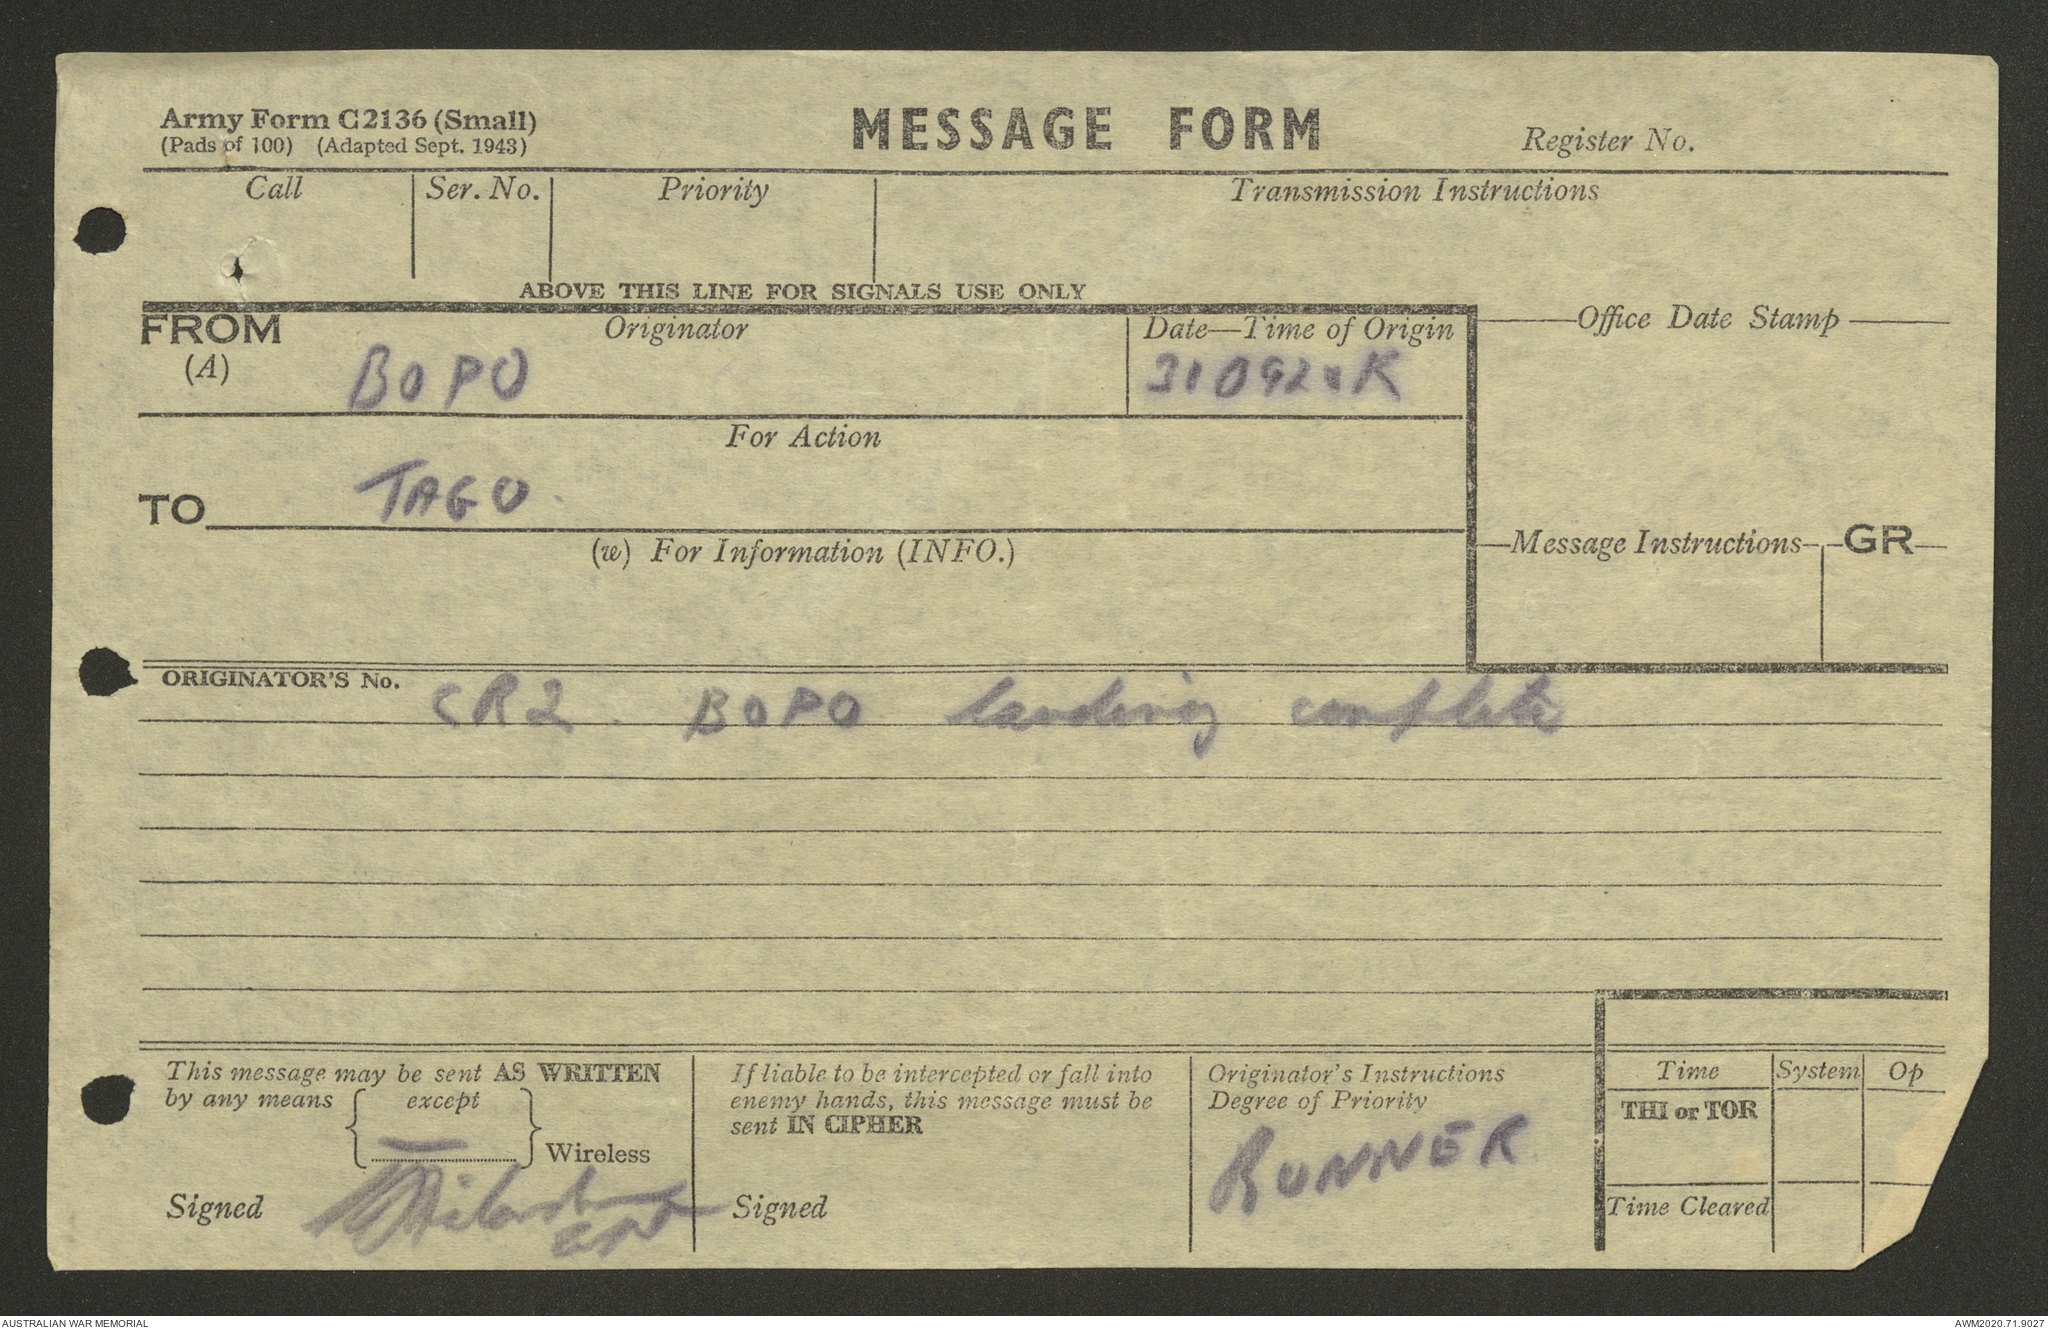 Army Form C2136 (Small)
(Pads of 100) (Adapted Sept. 1943)
MESSAGE FORM
Register No.
Call
Ser. No.
Priority
Transmission Instructions
ABOVE THIS LINE FOR SIGNALS USE ONLY
FROM
(A)
Originator
BOPO
Date—Time of Origin
Office Date Stamp
For Action
TO
TAGO
(w) For Information (INFO.)
Message Instructions
GR
ORIGINATOR'S No.
BOPO landing complete
This message may be sent AS WRITTEN
by any means
except
Wireless
Signed
If liable to be intercepted or fall into
enemy hands, this message must be
sent IN CIPHER
Signed
Originator's Instructions
Degree of Priority
RUNNER
Time
System
Op
THI or TOR
Time Cleared
AUSTRALIAN WAR MEMORIAL
AWM2020.71.9027